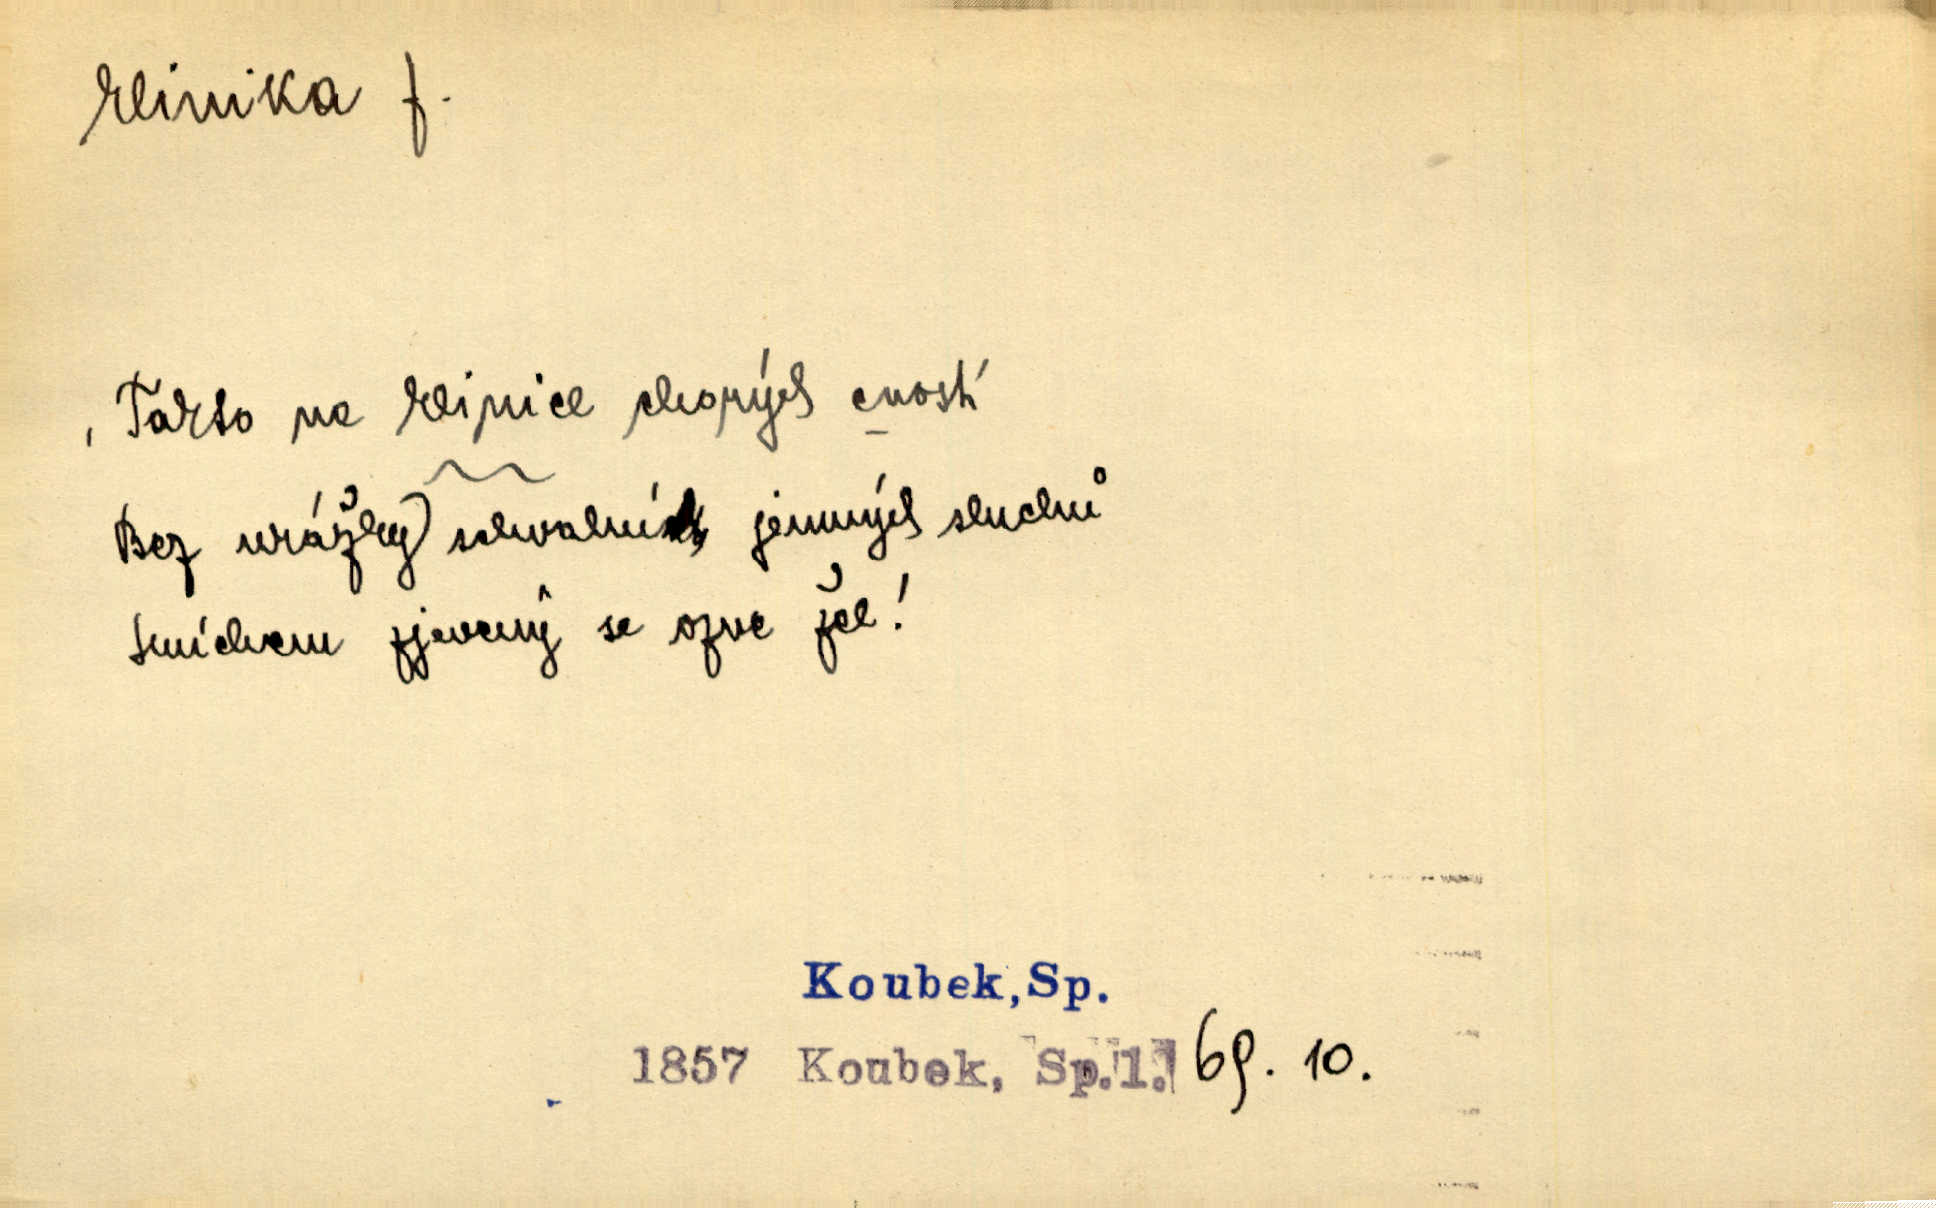 klinika f.
, Takto na klinice chorých cností
Bez urážky) schválních jemných sluchů
Smíchem zjevený se ozve žel!
Koubek, Sp.
1857 Koubek, Sp.1. 69. 10.